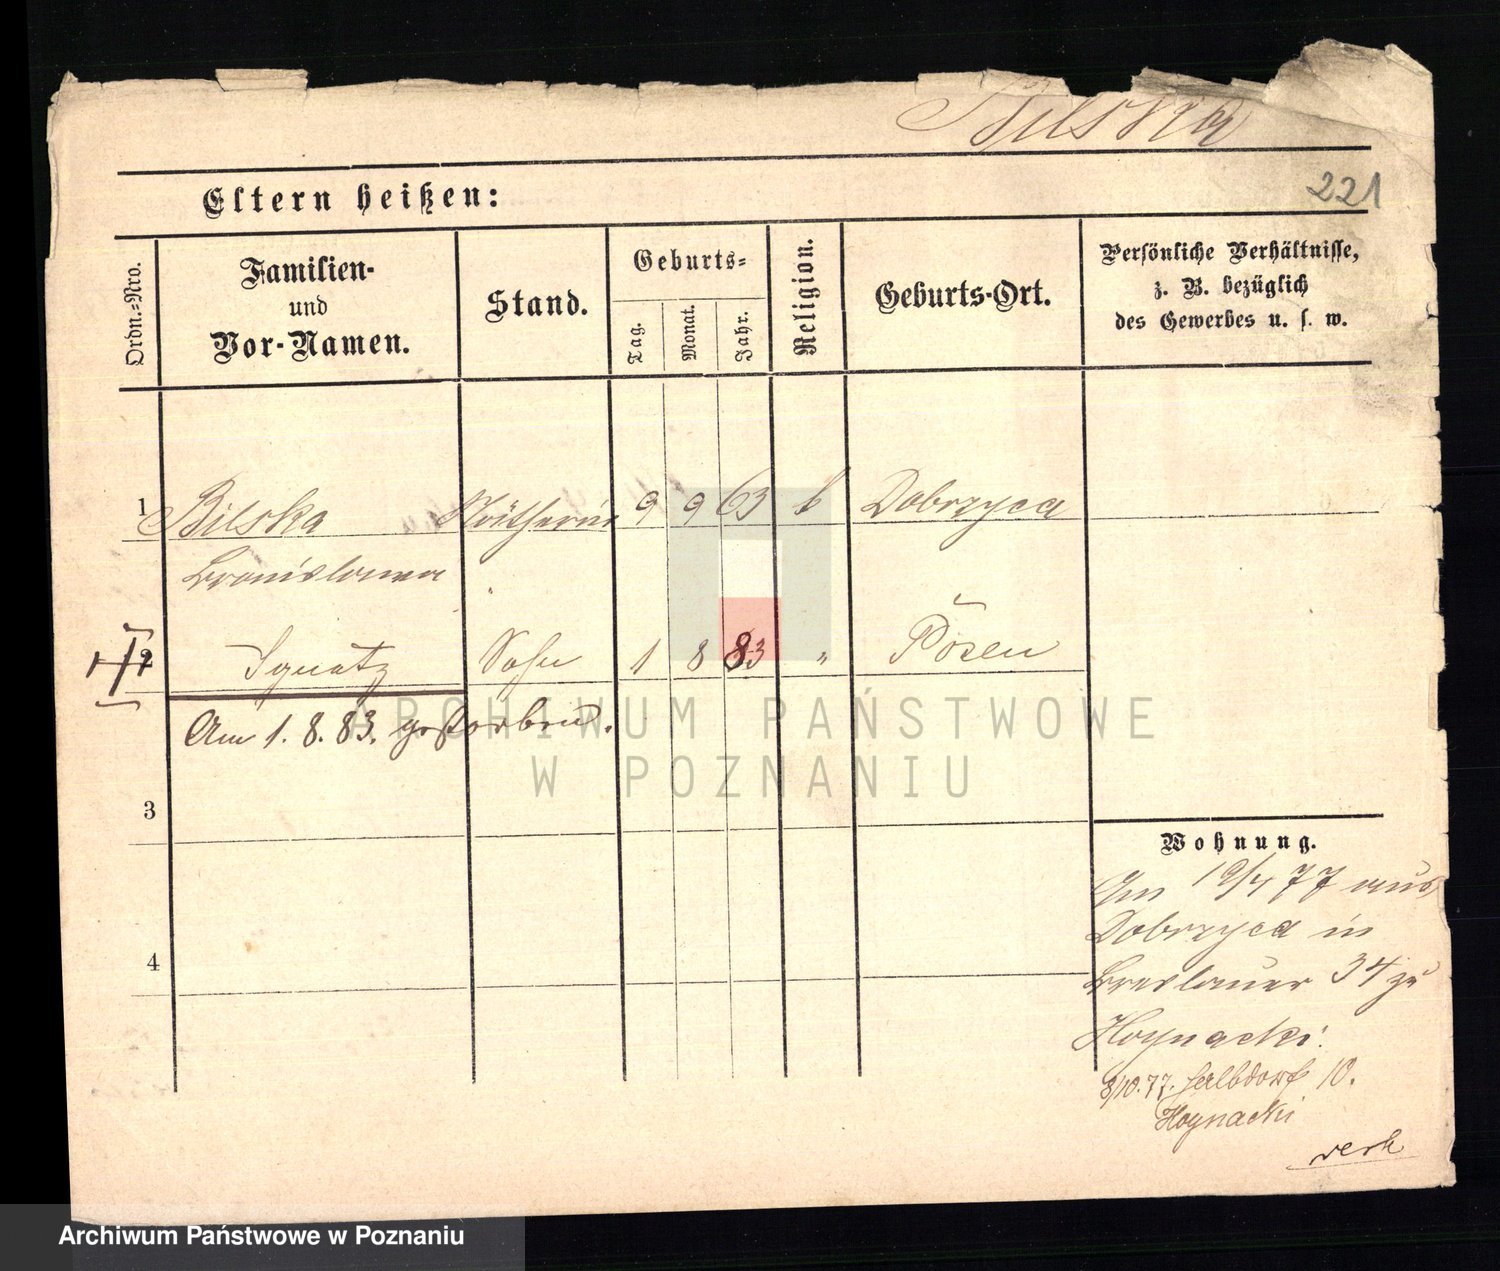 Bilska
221
Eltern heißen:
Ordn.-Nro.
Familien-
und
Vor-Namen.
Stand.
Geburts-
Tag.
Monat.
Jahr.
Religion.
Geburts-Ort.
Persönliche Verhältnisse,
z. B. bezüglich
des Gewerbes u. s. w.
1 Bilska 9 9 63 k Dobrzyca
Bronislawa
2 Ignatz Sohn 1 8 83 " Posen
Am 1. 8. 83. gestorben.
3
4
Wohnung.
Am 19/4 77 aus
Dobrzyca in
Breslauer 34 zu
Hoynacki.
8/10.77. Halbdorf 10.
Hoynacki
verh
ARCHIWUM PAŃSTWOWE
W POZNANIU
Archiwum Państwowe w Poznaniu